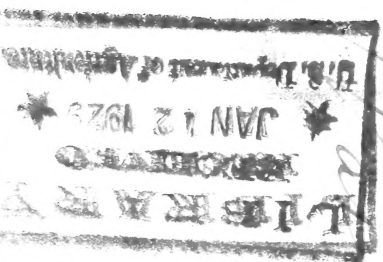 LIBRARY
RECEIVED
★ JAN 12 ★
U.S. Department of Agriculture